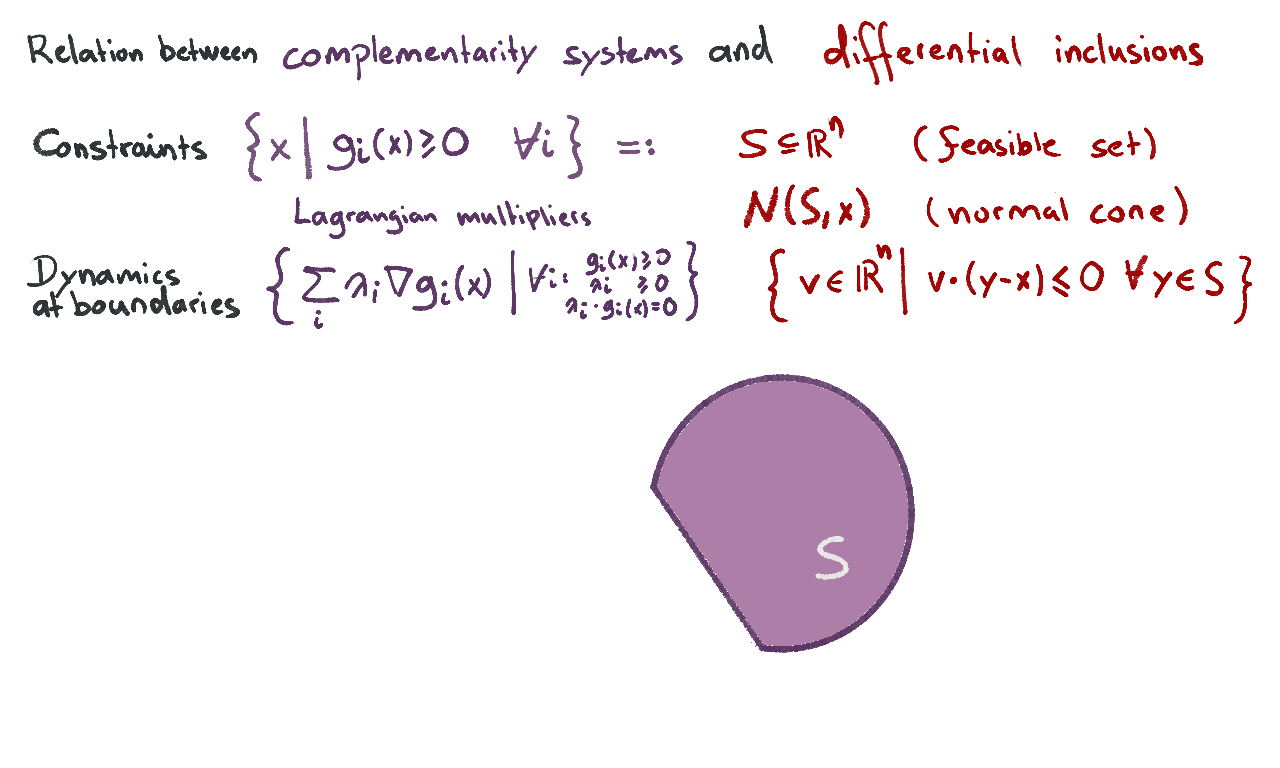 Relation between complementarity systems and differential inclusions
Constraints {x | gᵢ(x) ⩾ 0 ∀i} =: S ⊆ ℝⁿ (feasible set)
Lagrangian multipliers N(S,x) (normal cone)
Dynamics at boundaries { ∑ᵢ λᵢ ∇gᵢ(x) | ∀i: gᵢ(x) ⩾ 0 λᵢ ⩾ 0 λᵢ · gᵢ(x) = 0 } { v ∈ ℝⁿ | v · (y-x) ⩽ 0 ∀ y ∈ S }
S